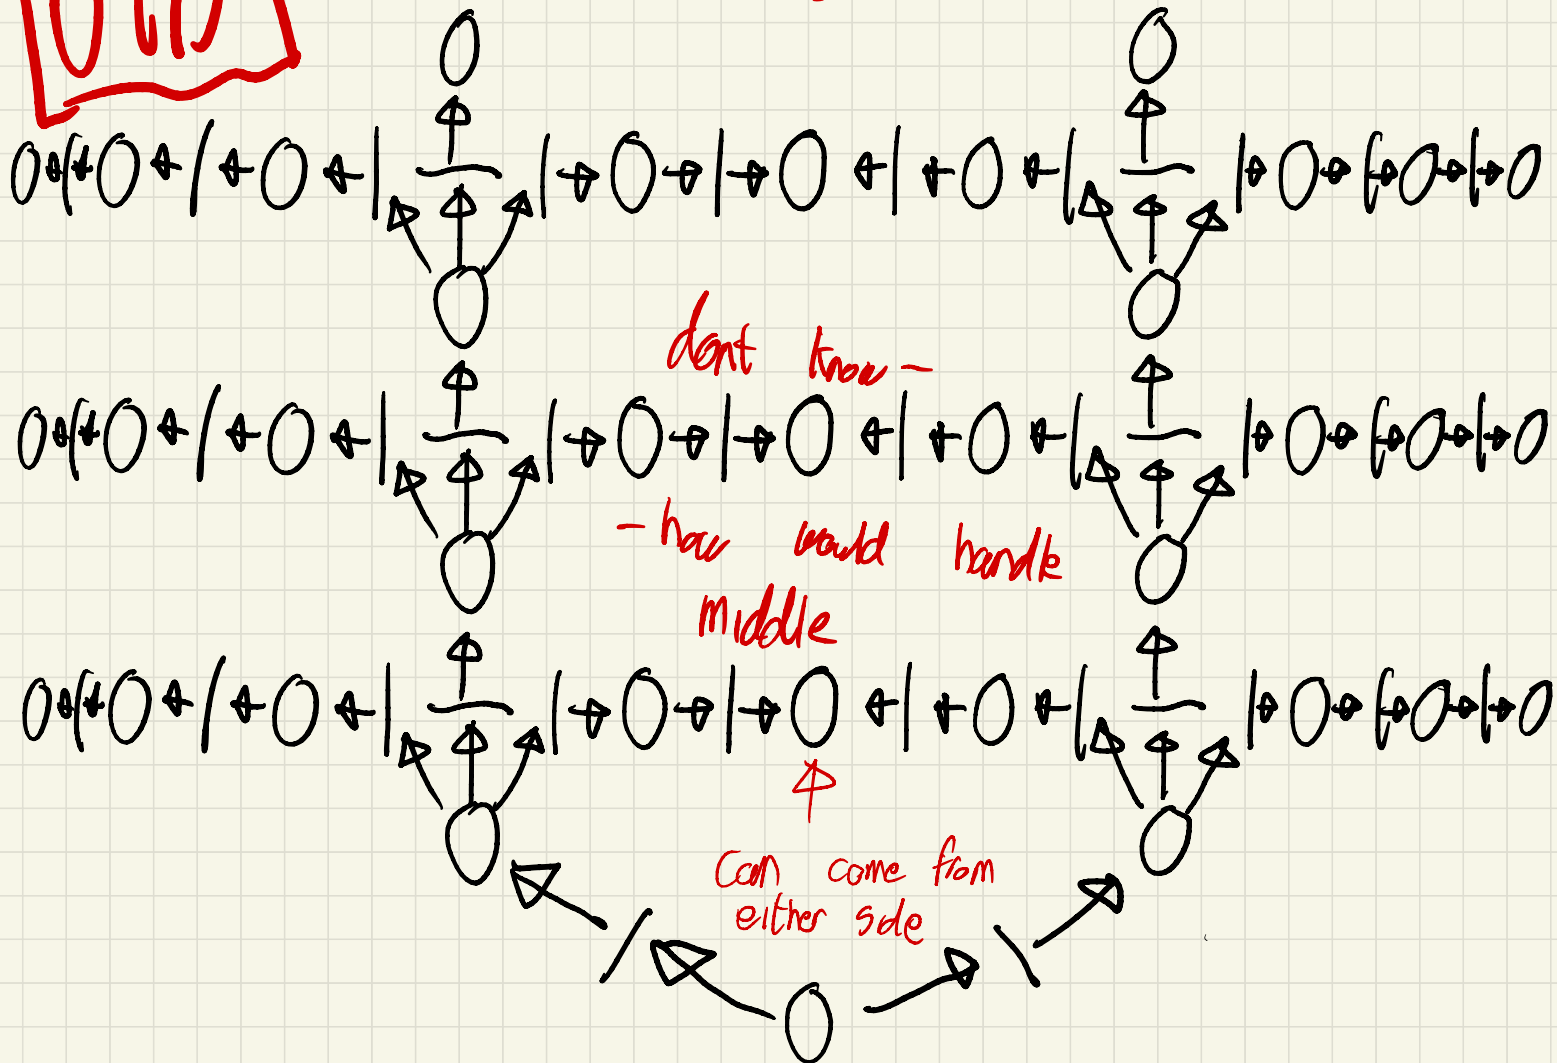 dont know -
- how would handle
middle
can come from
either side